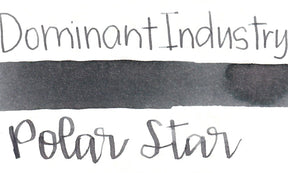 Dominant Industry
Polar Star